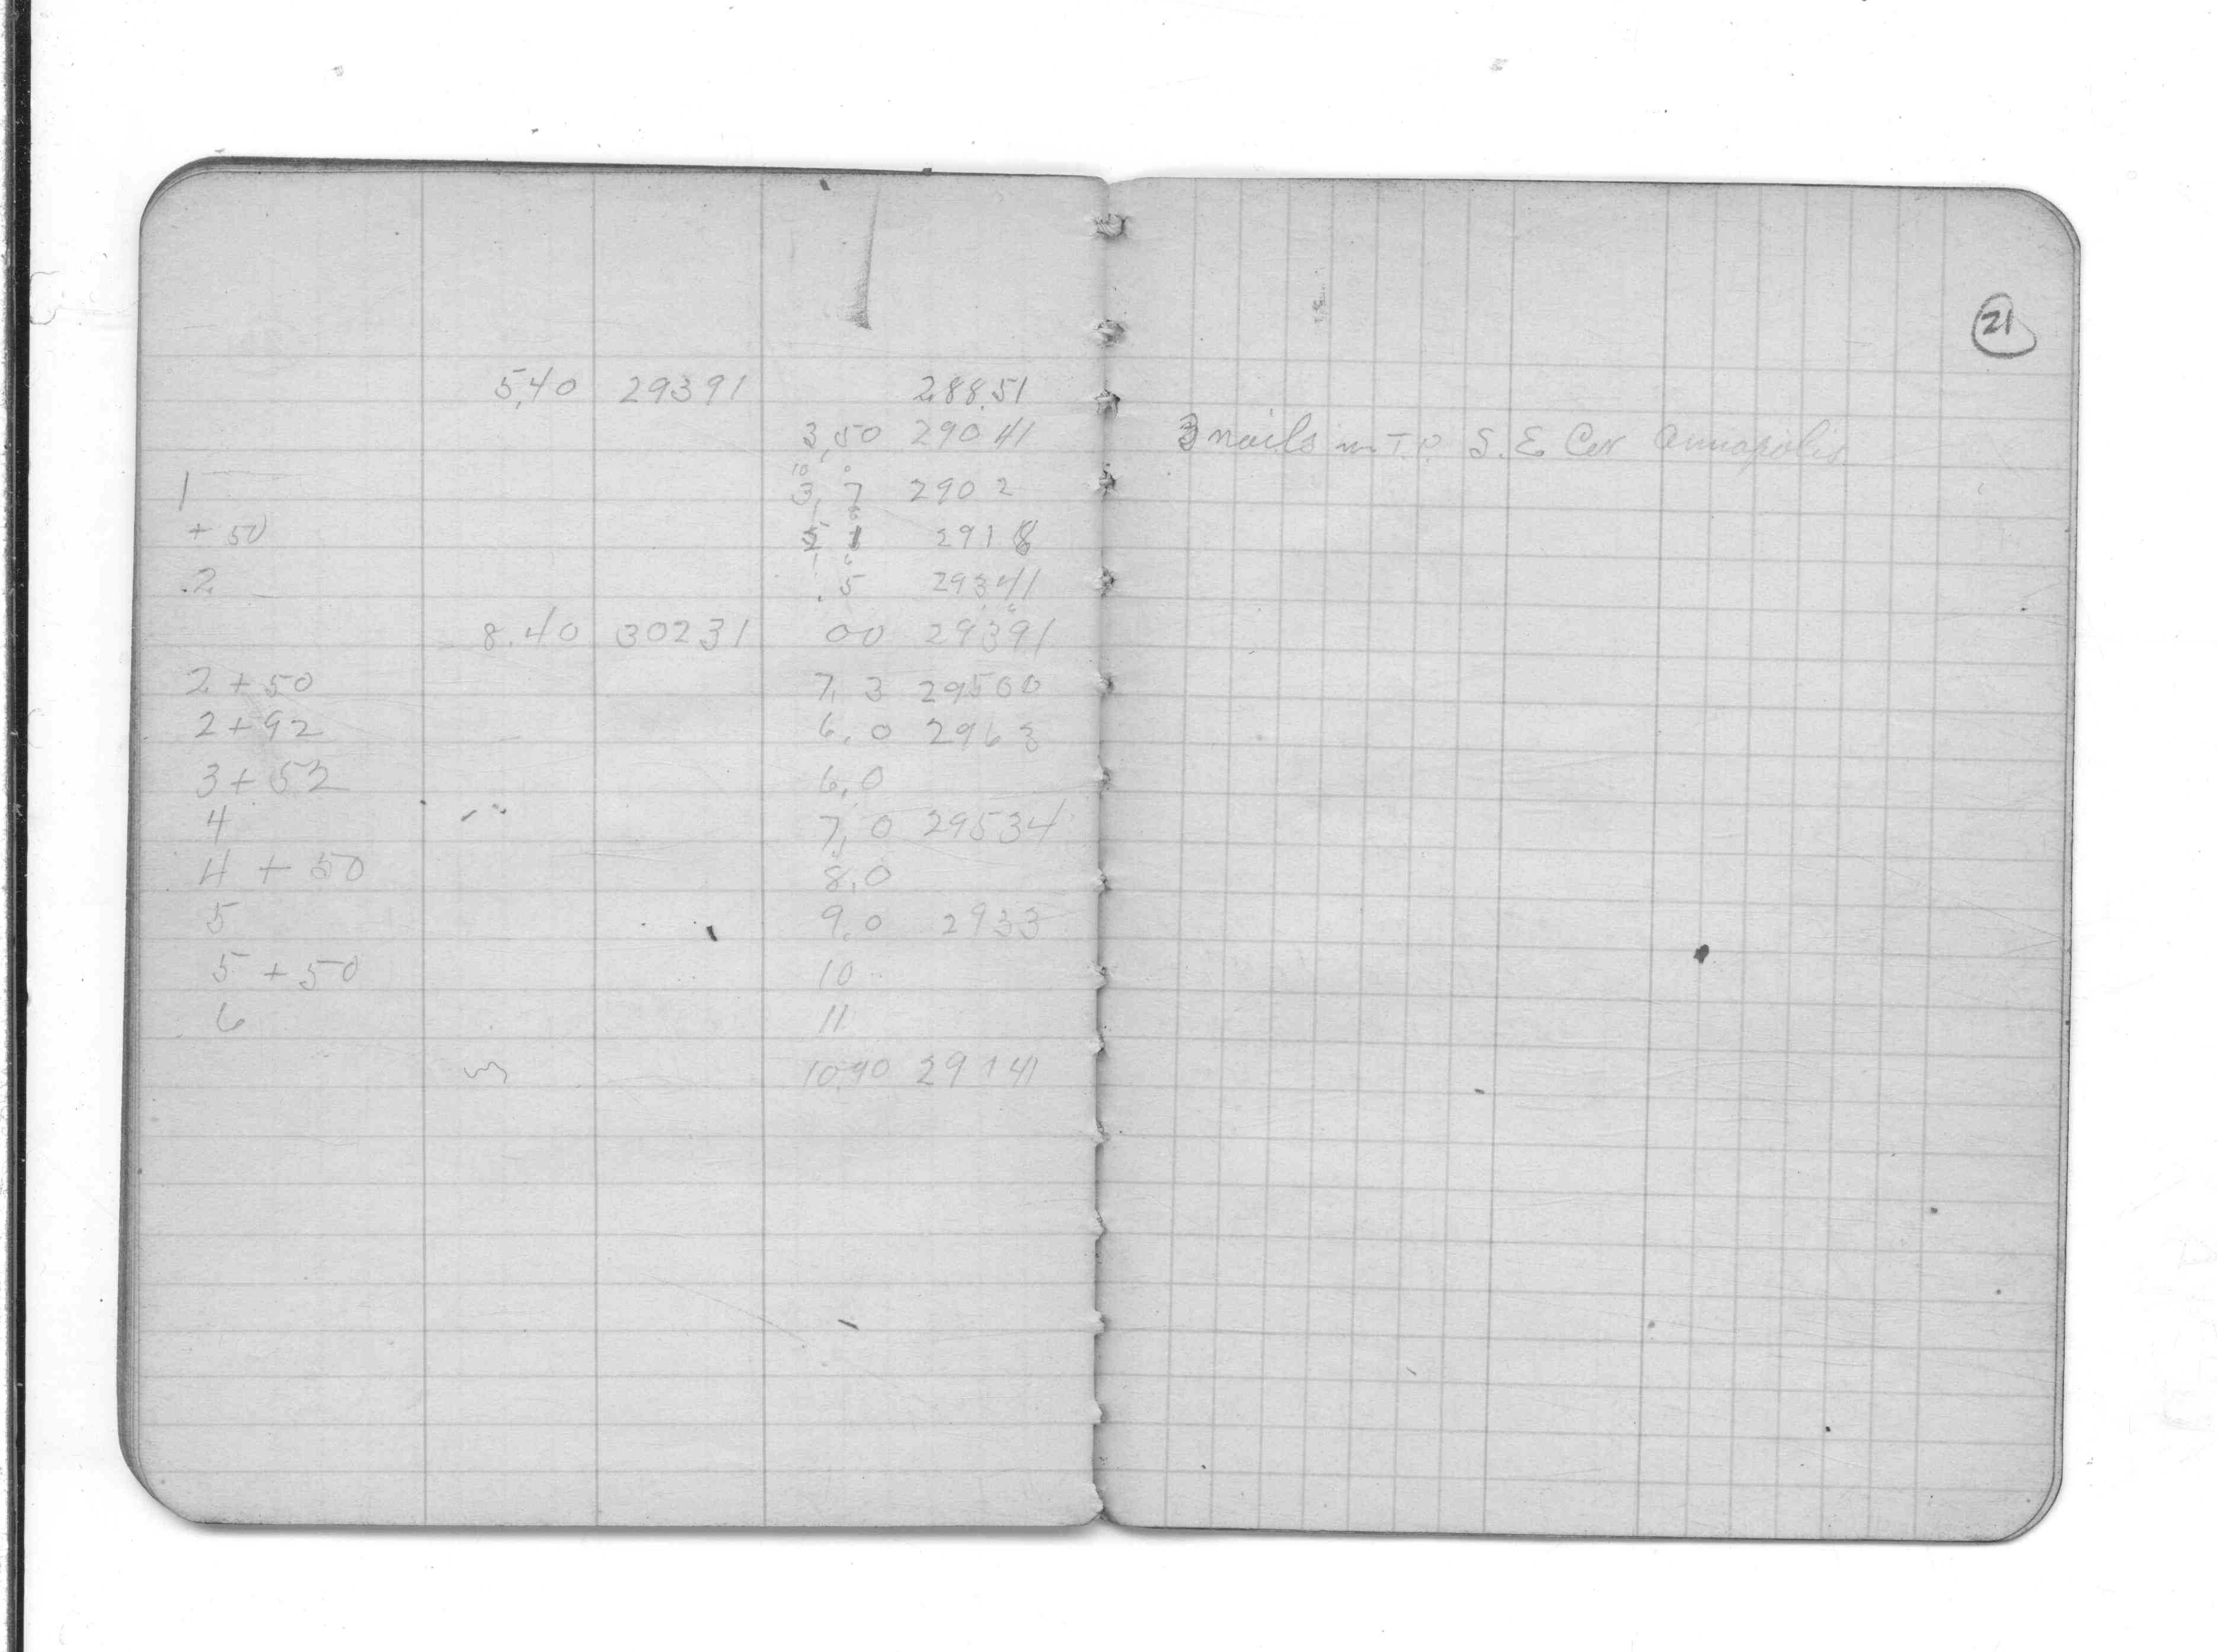 21
5.40 29391 288.51
3.50 29041 3 nails in T.P. S.E Cor Annapolis
1 3.7 290 2
+ 50 291 8
.2 .5 29341
8.40 30231 00 29391
2 + 50 7.3 29500
2 + 92 6.0 2963
3 + 52 6.0
4 7.0 29534
4 + 50 8.0
5 9.0 2933
5 + 50 10
6 11
10.90 29141